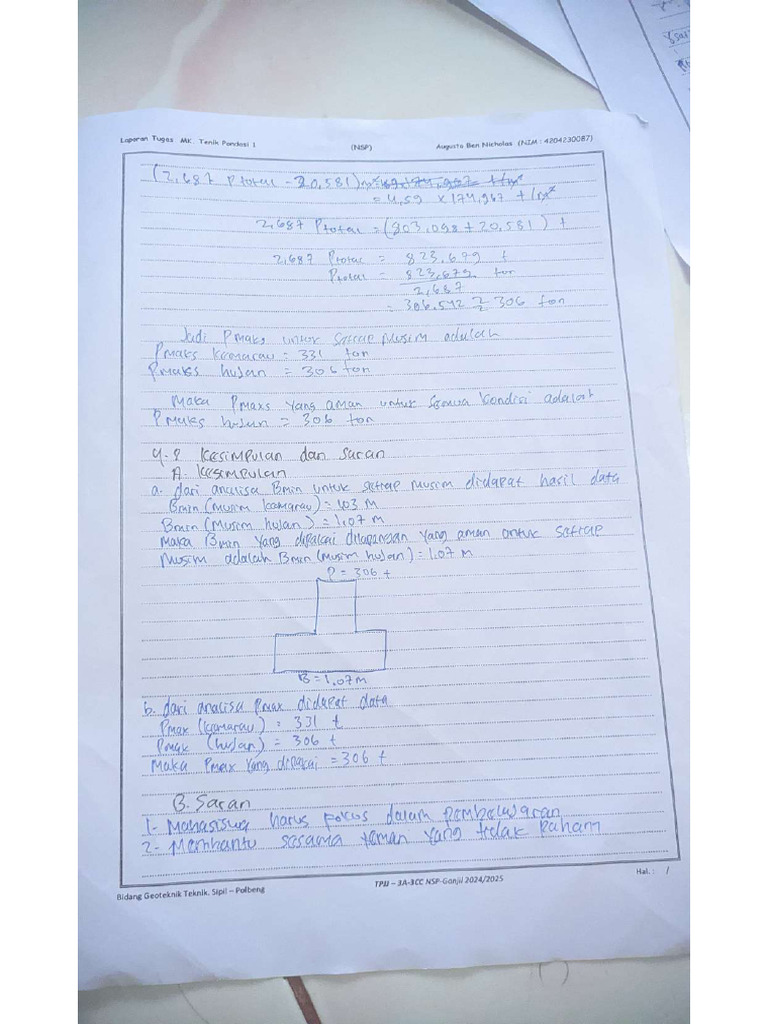 Laporan Tugas MK. Tenik Pondasi 1 (NSP) Augusto Ben Nicholas (NIM : 4204230087)
(2,687 Ptotal - 20,581)
= 4,59 x 174,967 t/m²
2,687 Ptotal = (803,098 + 20,581) t
2,687 Ptotal = 823,679 t
Ptotal = 823,679 ton
2,687
= 306,542 ≥ 306 ton
Jadi Pmaks untuk Setiap Musim adalah
Pmaks kemarau = 331 ton
Pmaks hujan = 306 ton
Maka Pmaxs yang aman untuk semua kondisi adalah
Pmaks hujan = 306 ton
4.2 Kesimpulan dan Saran
A. Kesimpulan
a. dari analisa Bmin untuk setiap Musim didapat hasil data
Bmin (musim kamarau) = 1,03 M
Bmin (Musim hujan) = 1,07 M
Maka Bmin yang dipakai dilapangan yang aman untuk setiap
Musim adalah Bmin (musim hujan) = 1,07 M
P = 306 t
B = 1,07 M
b. dari analisa Pmax didapat data
Pmax (kamarau) = 331 t
Pmax (hujan) = 306 t
Maka Pmax yang dipakai = 306 t
B. Saran
1- Mahasiswa harus pokus dalam pembelajaran
2- Membantu sesama teman yang tidak paham
Hal. : /
Bidang Geoteknik Teknik. Sipil – Polbeng TPJJ – 3A-3CC NSP-Ganjil 2024/2025